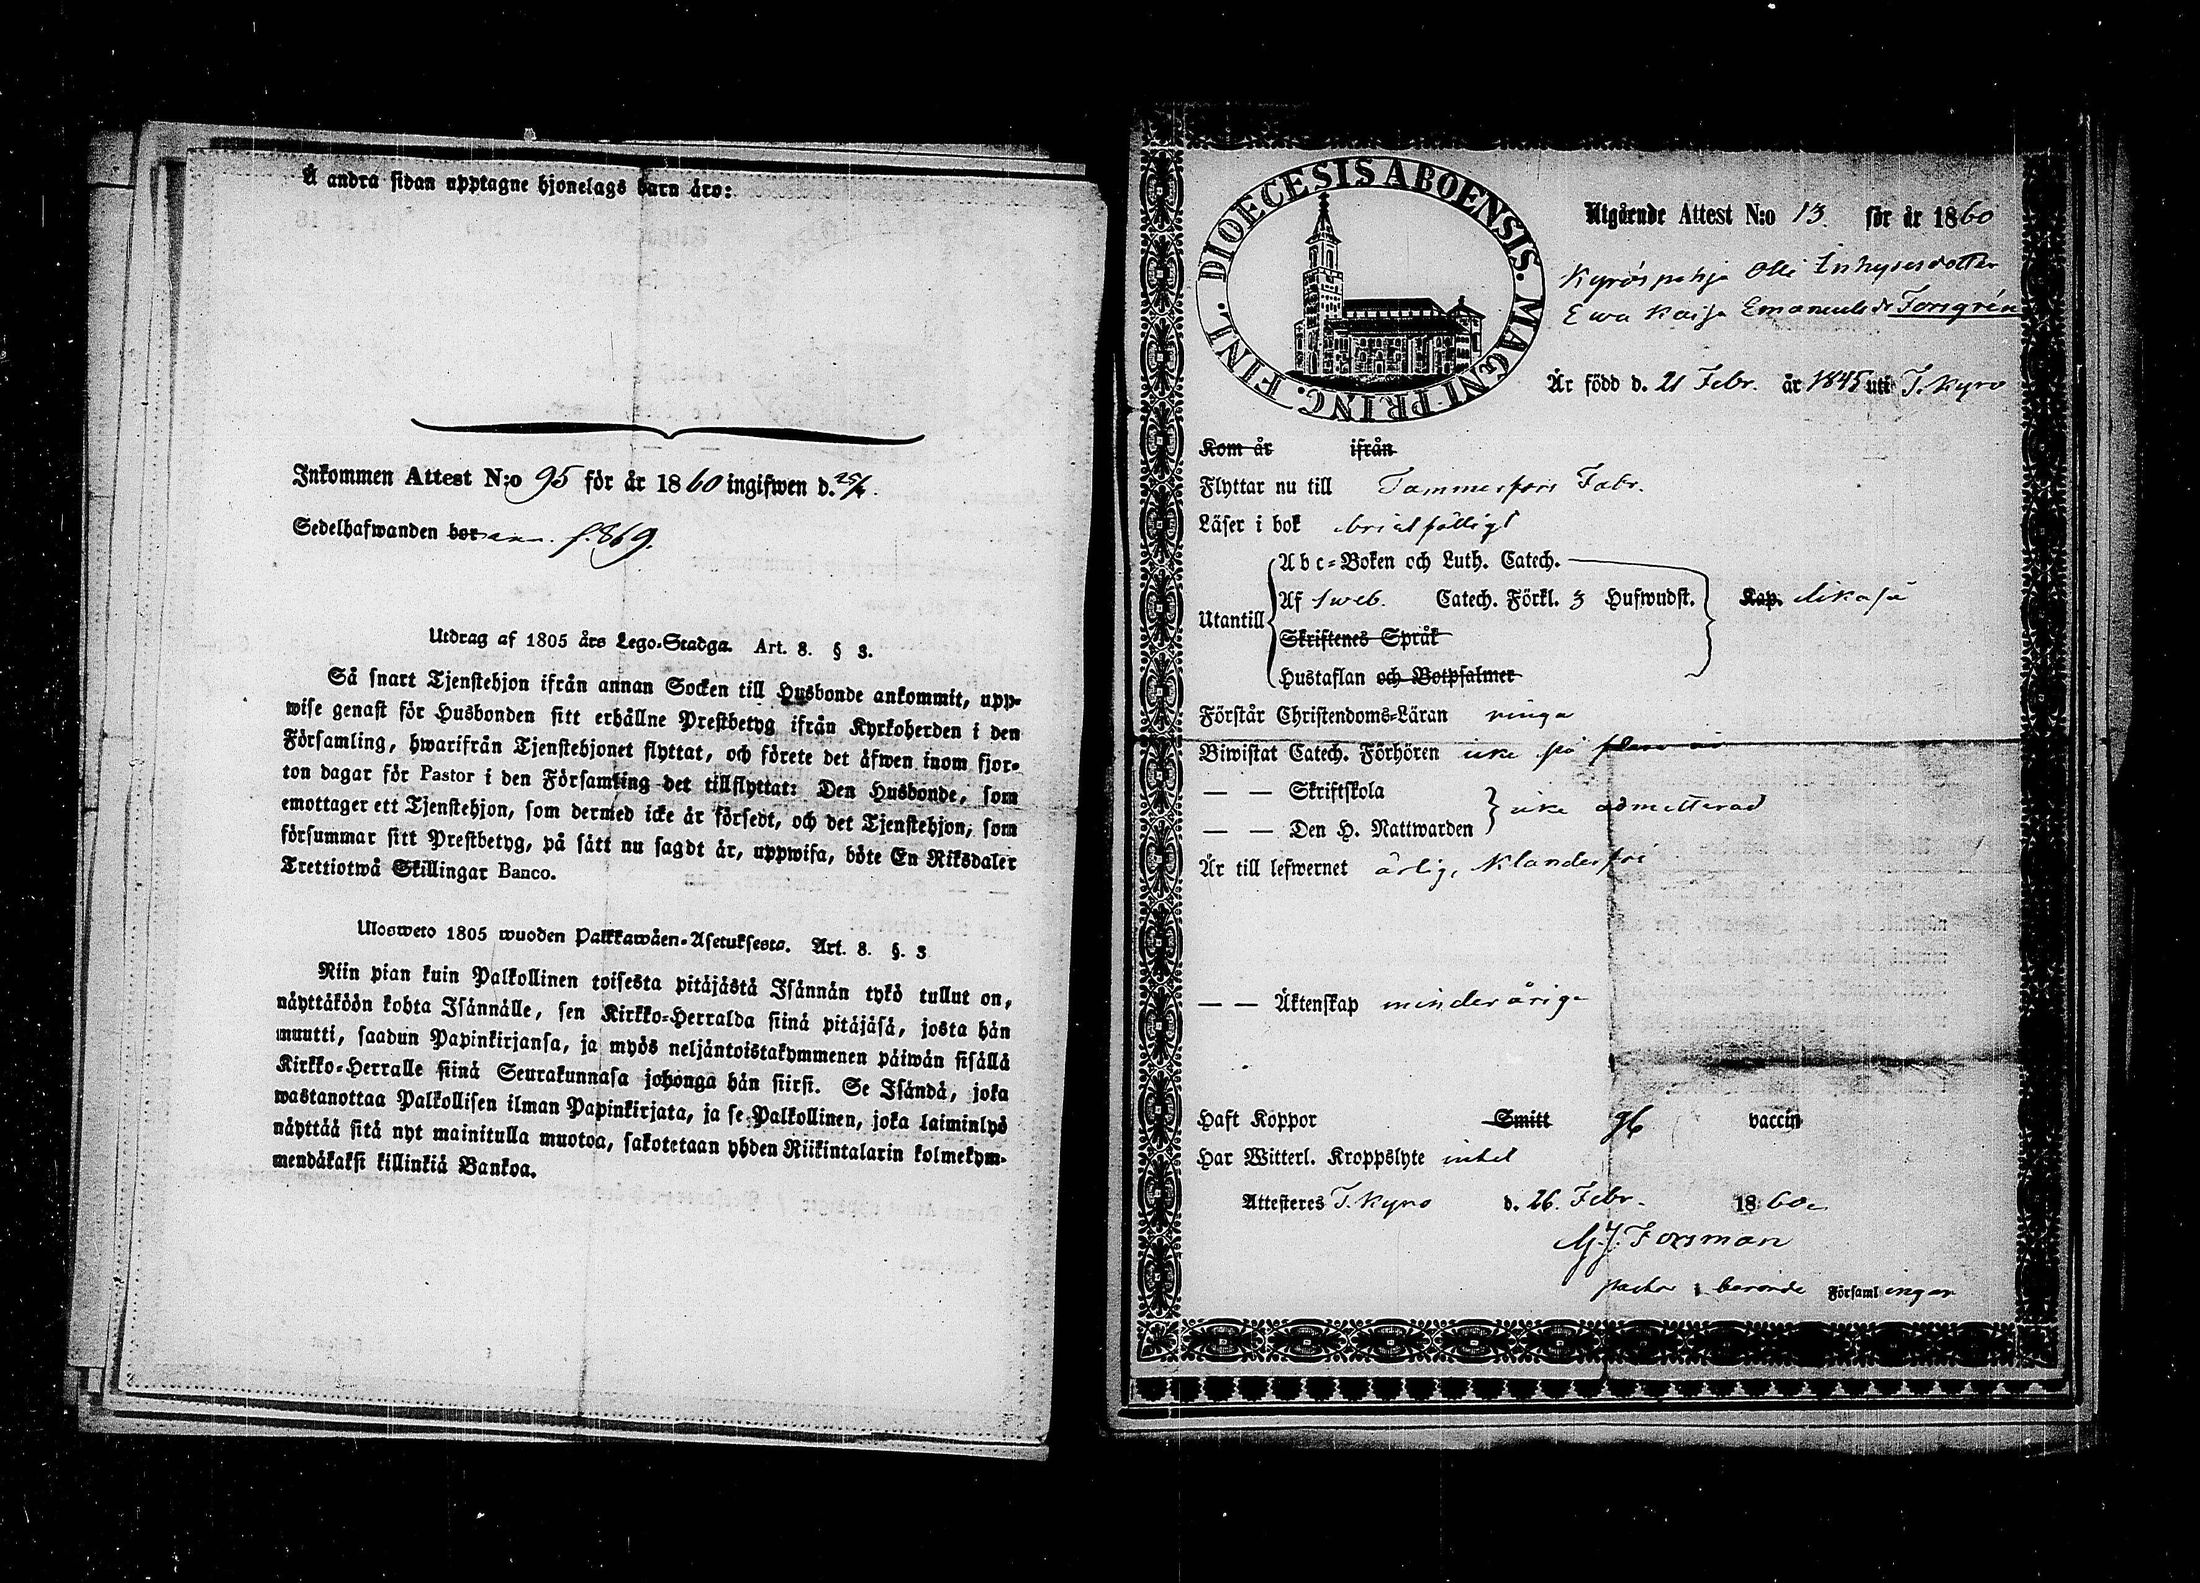 Å andra sidan upptagne hjonelags barn äro:
Inkommen Attest N:o 95 för år 1860 ingifwen d.
Sedelhafwanden bor ann. f. 869.
Utdrag af 1805 års Lego-Stadga. Art. 8. § 3.
Så snart Tjenstehjon ifrån annan Socken till Husbonde ankommit, upp-
wise genast för Husbonden sitt erhållne Prestbetyg ifrån Kyrkoherden i den
Församling, hwarifrån Tjenstehjonet flyttat, och förete det äfwen inom fjor-
ton dagar för Pastor i den Församling det tillflyttat: Den Husbonde, som
emottager ett Tjenstehjon, som dermed icke är försedt, och det Tjenstehjon, som
försummar sitt Prestbetyg, på sätt nu sagdt är, uppwisa, böte En Riksdaler
Trettiotwå Skillingar Banco.
Ulosweto 1805 wuoden Palkkawäen-Asetuksesta. Art. 8. §. 3
Niin pian kuin Palkollinen toisesta pitäjästä Isännän tykö tullut on,
näyttäköön kohta Isännälle, sen Kirkko-Herralda siinä pitäjäsä, josta hän
muutti, saadun Papinkirjansa, ja myös neljäntoistakymmenen päiwän sisällä
Kirkko-Herralle siinä Seurakunnasa johonga hän siirsi. Se Isändä, joka
wastanottaa Palkollisen ilman Papinkirjata, ja se Palkollinen, joka laiminlyö
näyttää sitä nyt mainitulla muotoa, sakotetaan yhden Riikintalarin kolmekym-
mendäkaksi killinkiä Bankoa.
DIOECESIS ABOENSIS. MAGNI PRINC. FINL.
Utgående Attest N:o 13. för år 1860
Kyröspohja Olli Inhysesdotter
Ewa Kaisa Emanuelsdr Forsgrén
Är född d. 21 Febr. år 1845 uti T. Kyro
Kom år ifrån
Flyttar nu till Tammerfors Fabr.
Läser i bok bristfälligt
Abc-Boken och Luth. Catech.
Utantill Af Sweb. Catech. Förkl. 3 Hufwudst. Kap. likaså
Skriftenes Språk
Hustaflan och Botpsalmer
Förstår Christendoms-Läran ringa
Biwistat Catech. Förhören icke på
— — Skriftskola
— — Den H. Nattwarden icke admitterad
Är till lefwernet ärlig, klanderfri
— — Äktenskap minderårige
Haft Koppor Smitt vaccin
Har Witterl. Kroppslyte intet
Attesteres T. Kyro d. 26. Febr. 1860.
M.J. Forsman
pastor i berörde Församlingar